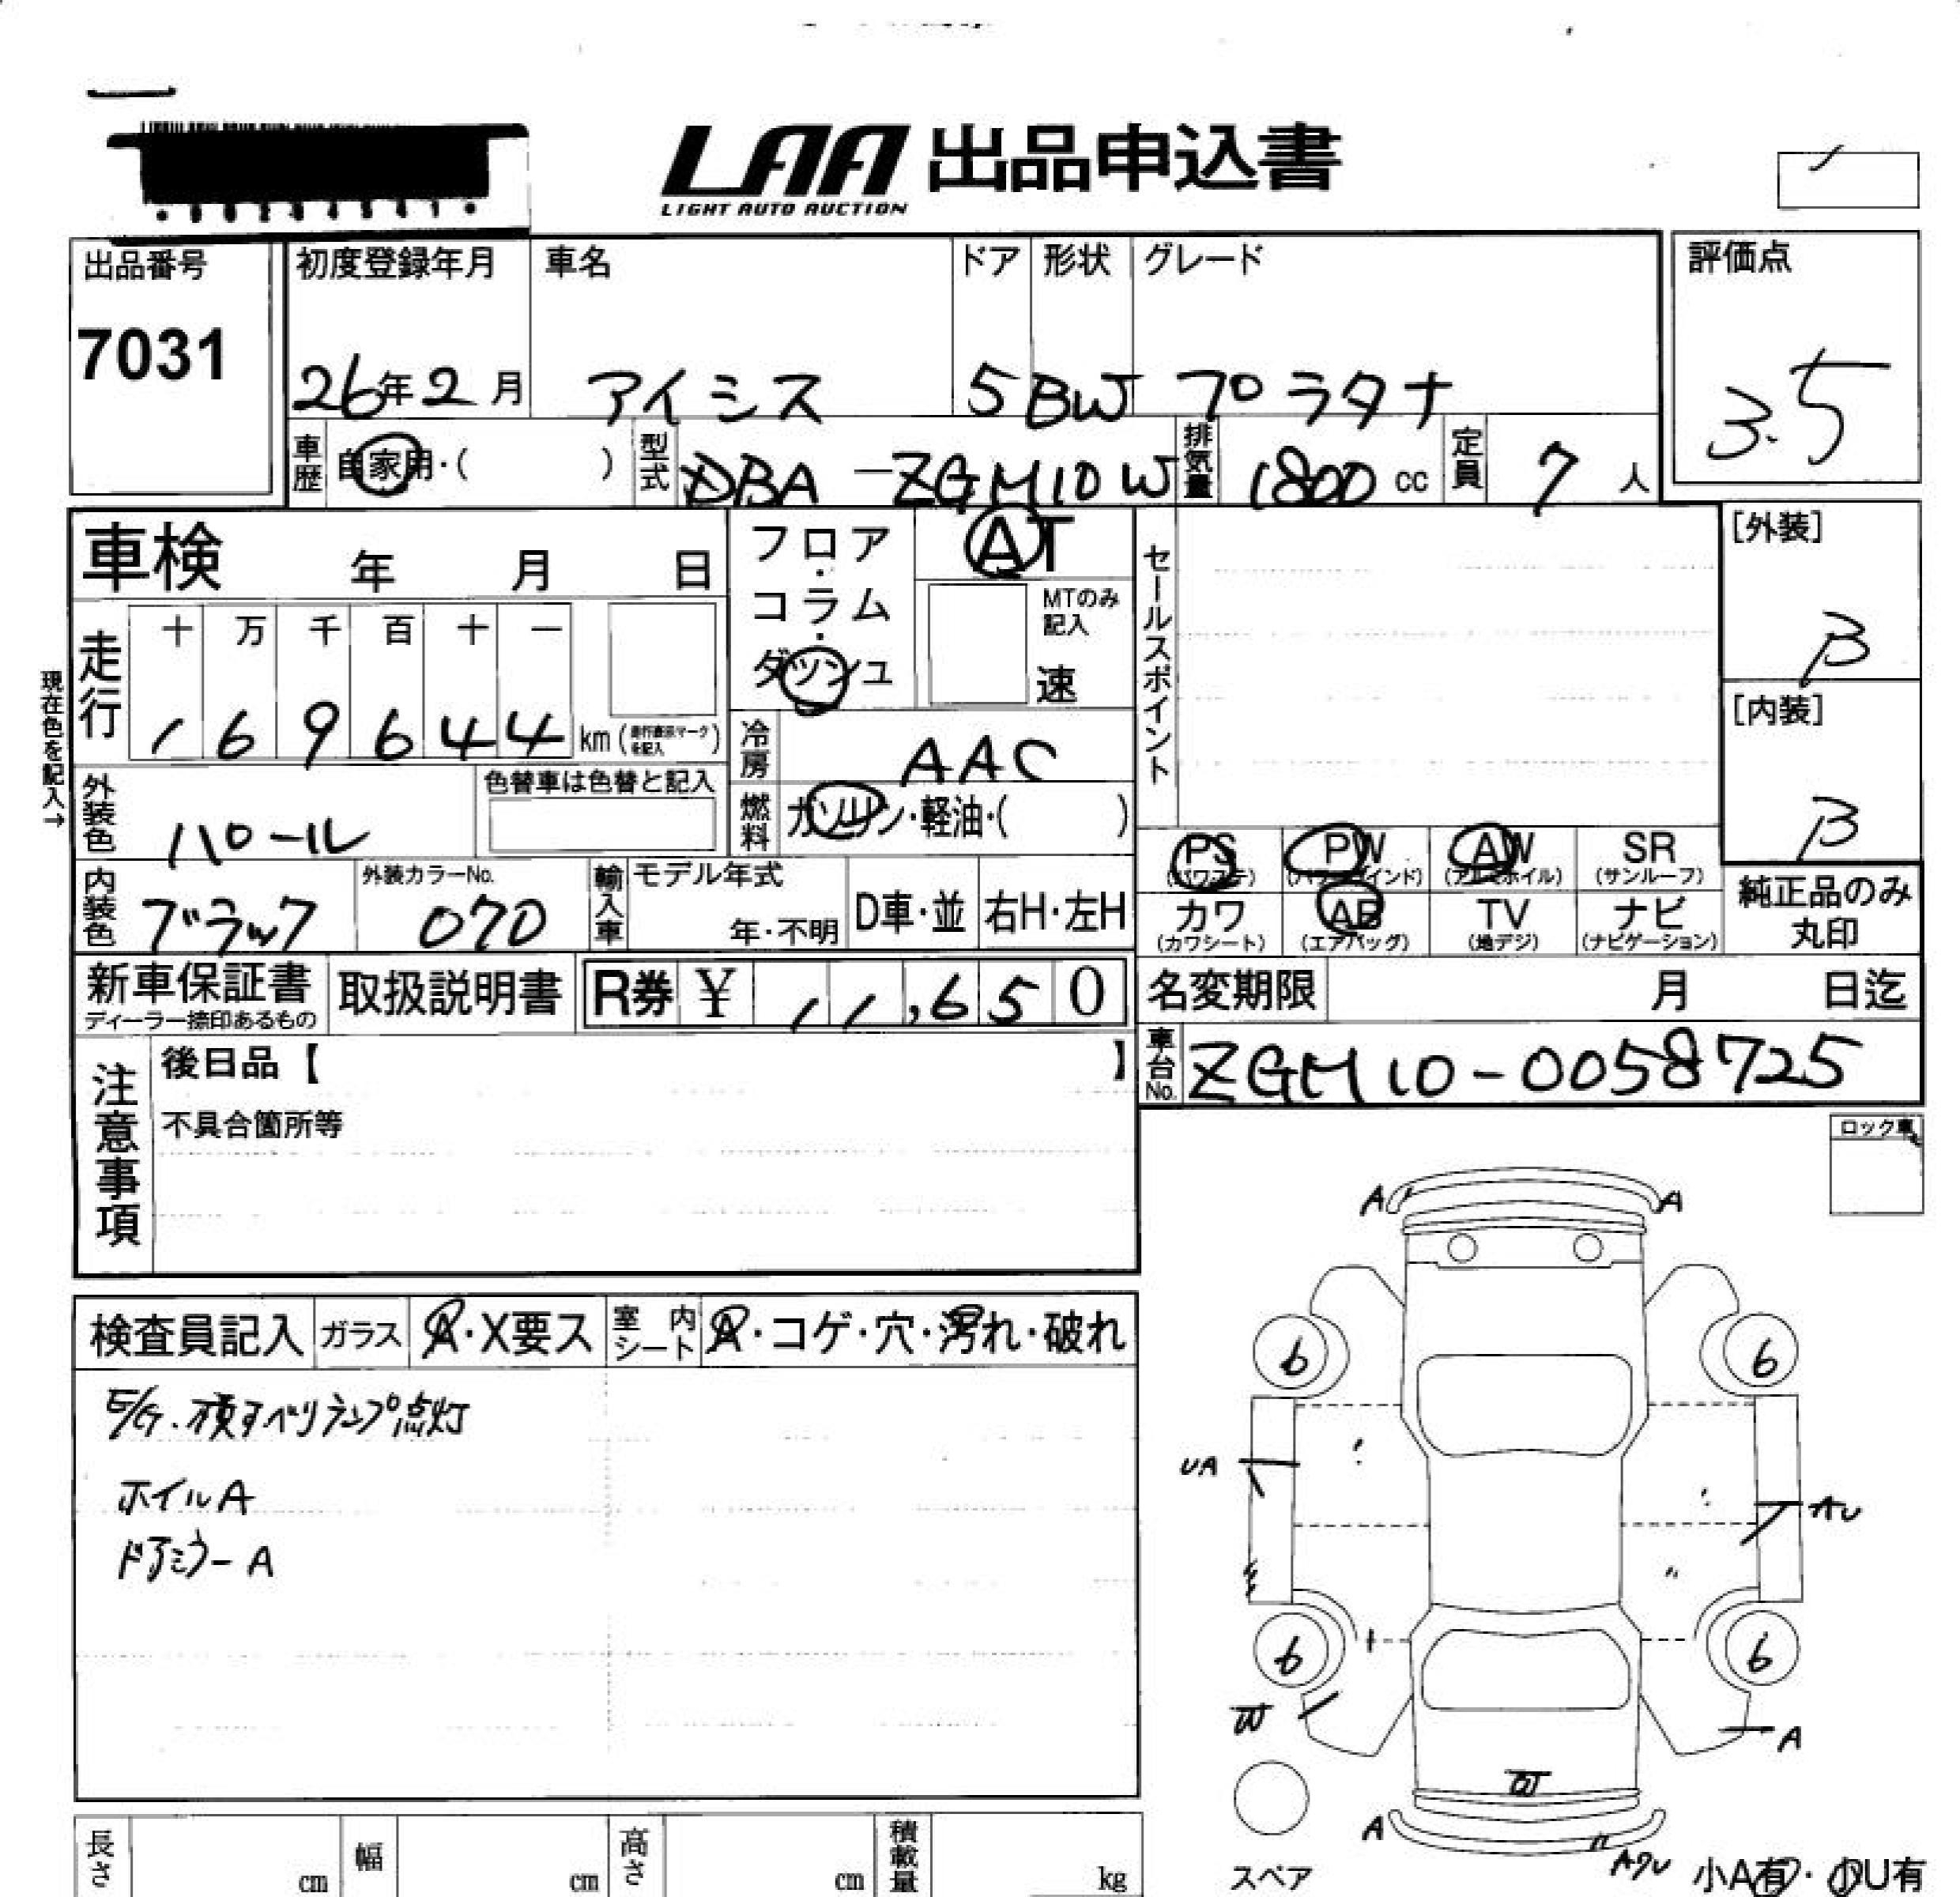 LAA 出品申込書
LIGHT AUTO AUCTION
出品番号 初度登録年月 車名 ドア 形状 グレード 評価点
7031 26年2月 アイシス 5 BW プラタナ 3.5
車歴 自家用・( ) 型式 DBA-ZGM10W 排気量 1800 cc 定員 7 人
車検 年 月 日 フロア・コラム・ダッシュ AT
MTのみ記入 速
セールスポイント
[外装]
B
[内装]
B
現在色を記入→
走行 十 万 千 百 十 一
1 6 9 6 4 4 km (走行表示マークを記入)
冷房 AAC
外装色 パール 色替車は色替と記入
燃料 ガソリン・軽油・( )
PS (パワステ) PW (パワーウインド) AW (アルミホイル) SR (サンルーフ)
カワ (カワシート) AB (エアバッグ) TV (地デジ) ナビ (ナビゲーション)
純正品のみ丸印
内装色 ブラック 外装カラーNo. 070 輸入車 モデル年式 年・不明 D車・並 右H・左H
新車保証書 ディーラー捺印あるもの 取扱説明書 R券 ¥ 11,650
名変期限 月 日迄
車台No. ZGM10-0058725
注意事項
後日品【 】
不具合箇所等
ロック車
検査員記入 ガラス A・X要ス 室内シート A・コゲ・穴・汚れ・破れ
E/G、横すべりランプ点灯
ホイルA
ドアミラーA
A A
6 6
UA AU
6 6
W A
W
A
スペア
小A有・小U有
長さ cm 幅 cm 高さ cm 積載量 kg